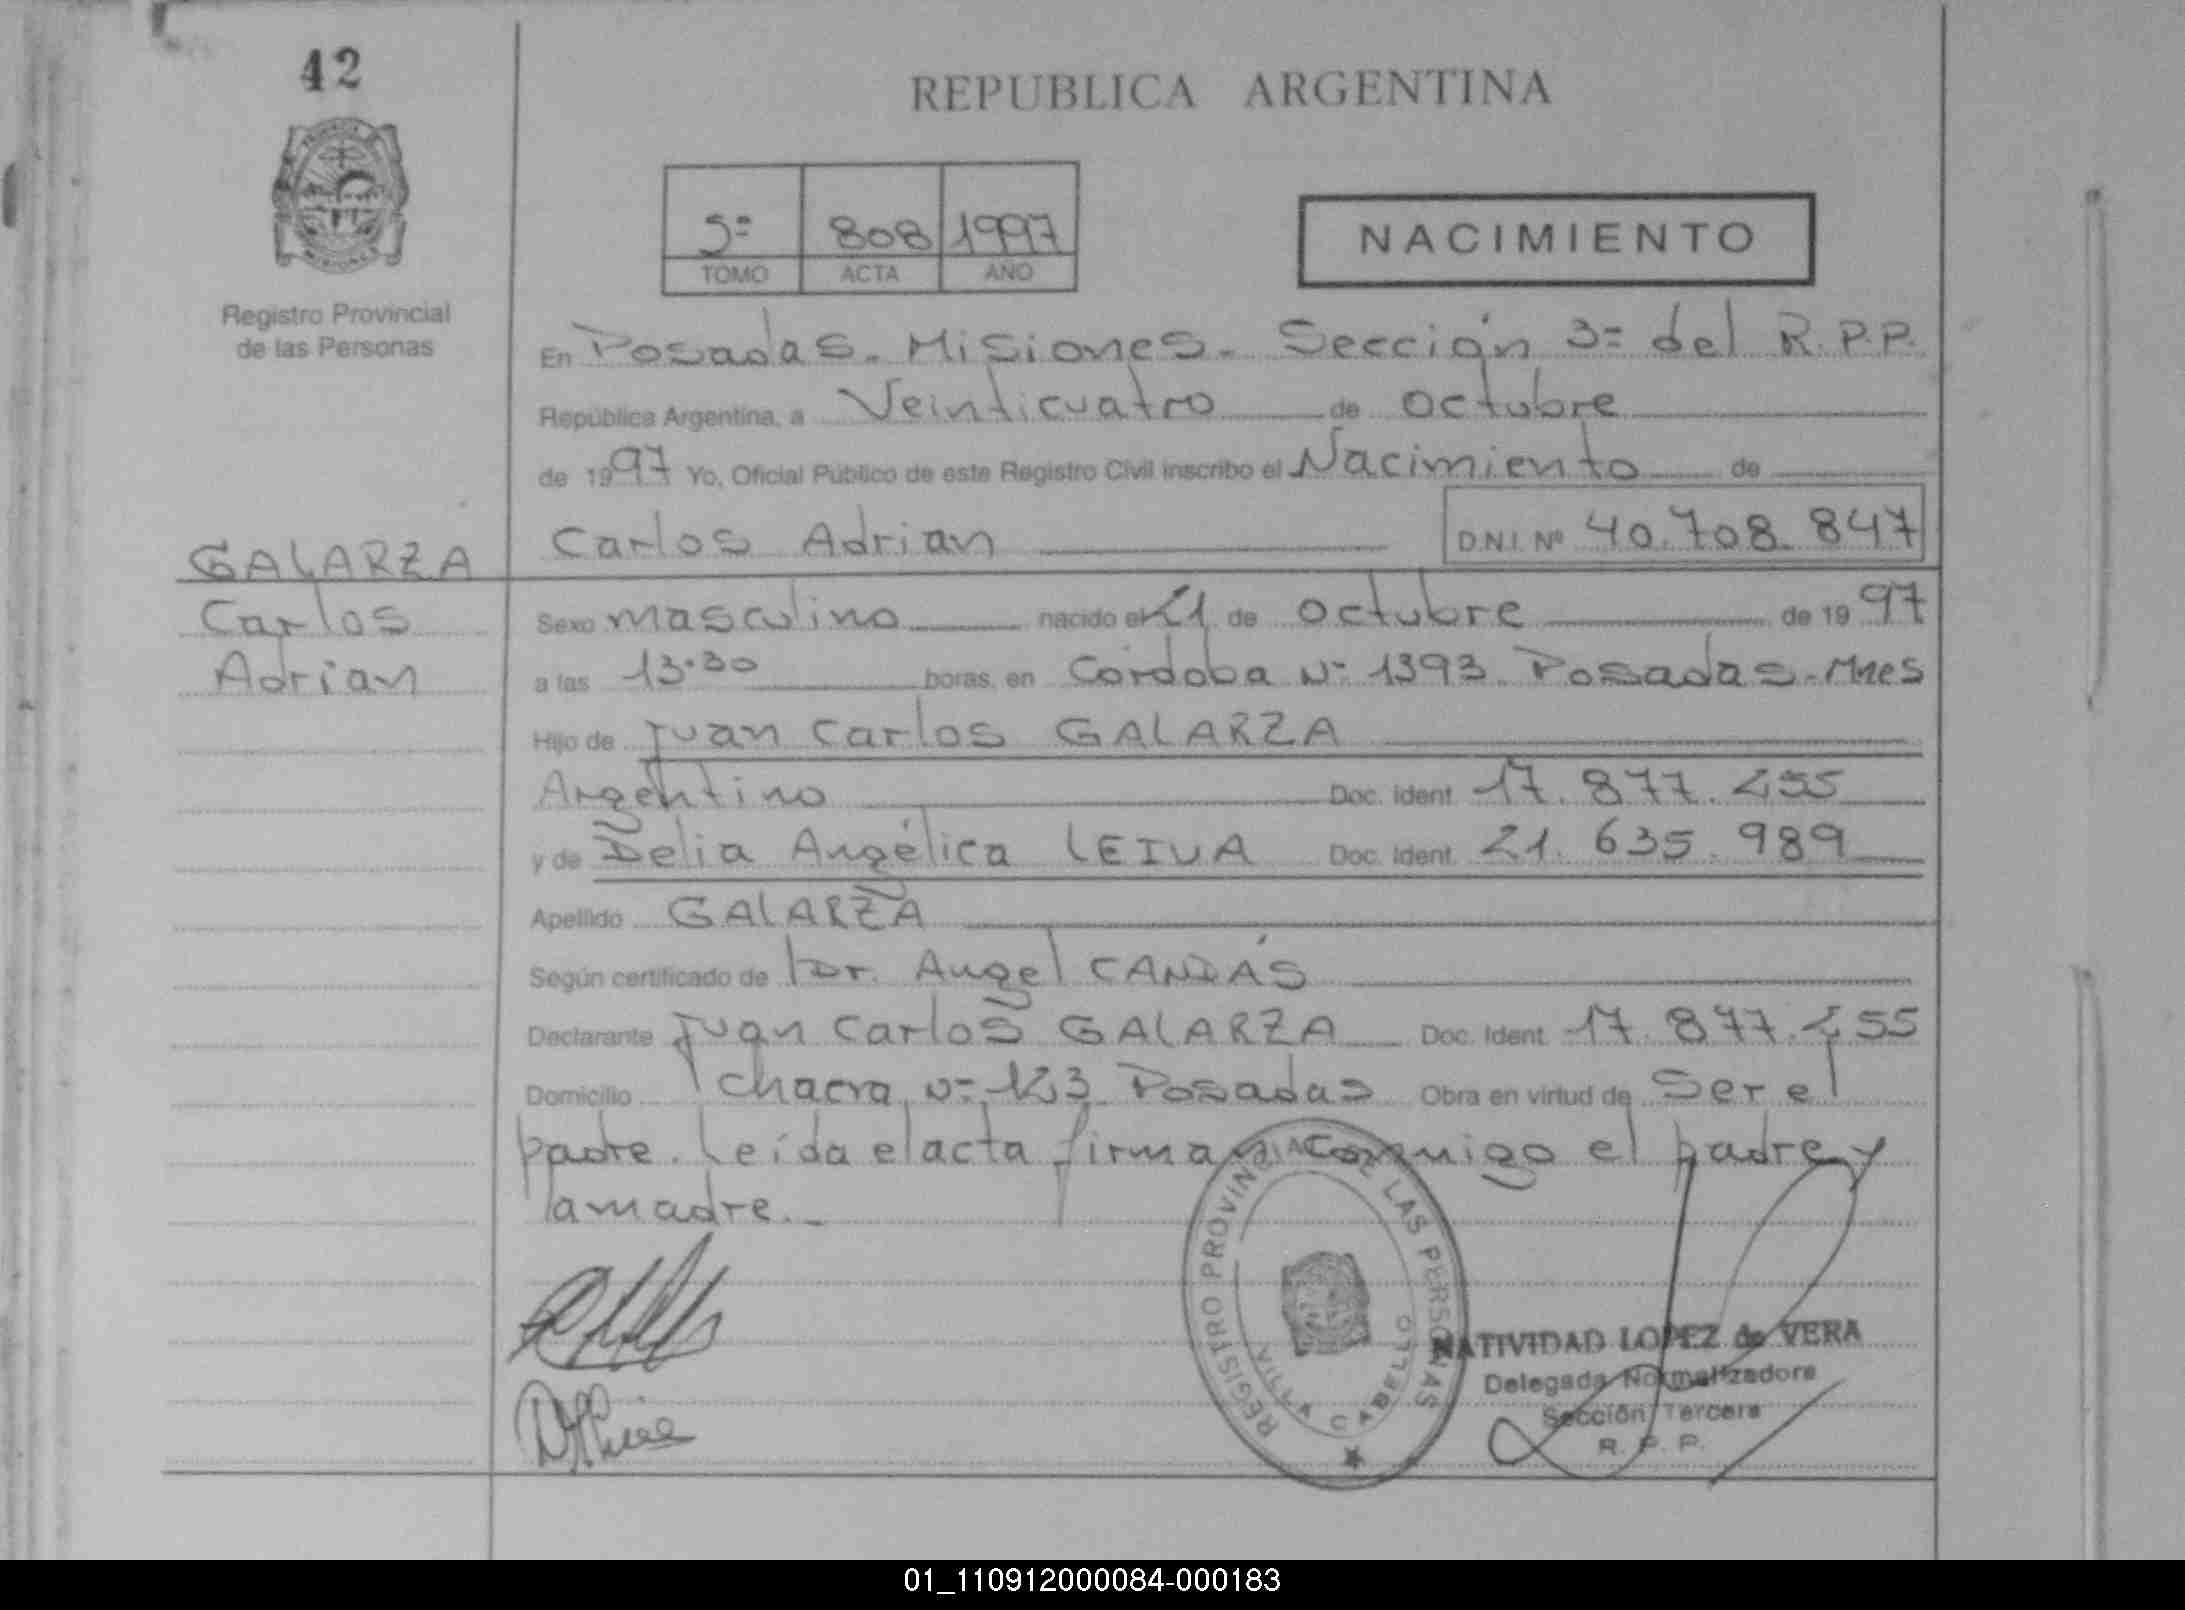 42
REPUBLICA ARGENTINA
5º 808 1997
TOMO ACTA AÑO
NACIMIENTO
Registro Provincial
de las Personas
En Posadas. Misiones. Sección 3º del R.P.P.
República Argentina, a Veinticuatro de octubre
de 1997 Yo, Oficial Público de este Registro Civil inscribo el Nacimiento de
Carlos Adrian D.N.I. Nº 40.708.847
GALARZA
Carlos
Adrian
Sexo masculino nacido el 21 de octubre de 1997
a las 13.30 horas, en Córdoba Nº 1393 Posadas-Mnes
Hijo de Juan Carlos GALARZA
Argentino Doc. Ident. 17.877.255
y de Delia Angélica LEIVA Doc. Ident. 21.635.989
Apellido GALARZA
Según certificado de Dr. Angel CANDÁS
Declarante Juan Carlos GALARZA Doc. Ident. 17.877.255
Domicilio chacra Nº 123 Posadas Obra en virtud de Ser el
padre. Leída el acta firman conmigo el padre y
la madre.
REGISTRO PROVINCIAL DE LAS PERSONAS
VILLA CABELLO
NATIVIDAD LOPEZ de VERA
Delegada Normalizadora
Sección Tercera
R. P. P.
01_110912000084-000183